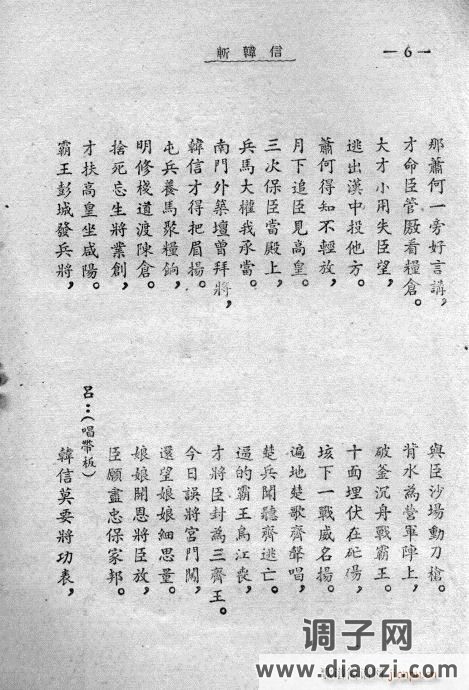 斬韓信
—6—
那蕭何一旁好言講，
才命臣管廒看糧倉。
大才小用失臣望，
逃出漢中投他方。
蕭何得知不輕放，
月下追臣見高皇。
三次保臣當殿上，
兵馬大權我承當。
南門外築壇曾拜將，
韓信才得把眉揚。
屯兵養馬聚糧餉，
明修棧道渡陳倉。
捨死忘生將業創，
才扶高皇坐咸陽。
霸王彭城發兵將，
與臣沙場動刀槍。
背水為營軍陣上，
破釜沉舟戰霸王。
十面埋伏在砣碭，
垓下一戰威名揚。
遍地楚歌齊聲唱，
楚兵聞聽齊逃亡。
逼的霸王烏江喪，
才將臣封為三齊王。
今日誤將宮門闖，
還望娘娘細思量。
娘娘開恩將臣放，
臣願盡忠保家邦。
呂：（唱帶板）
韓信莫要將功表，
调子网
www.diaozi.com